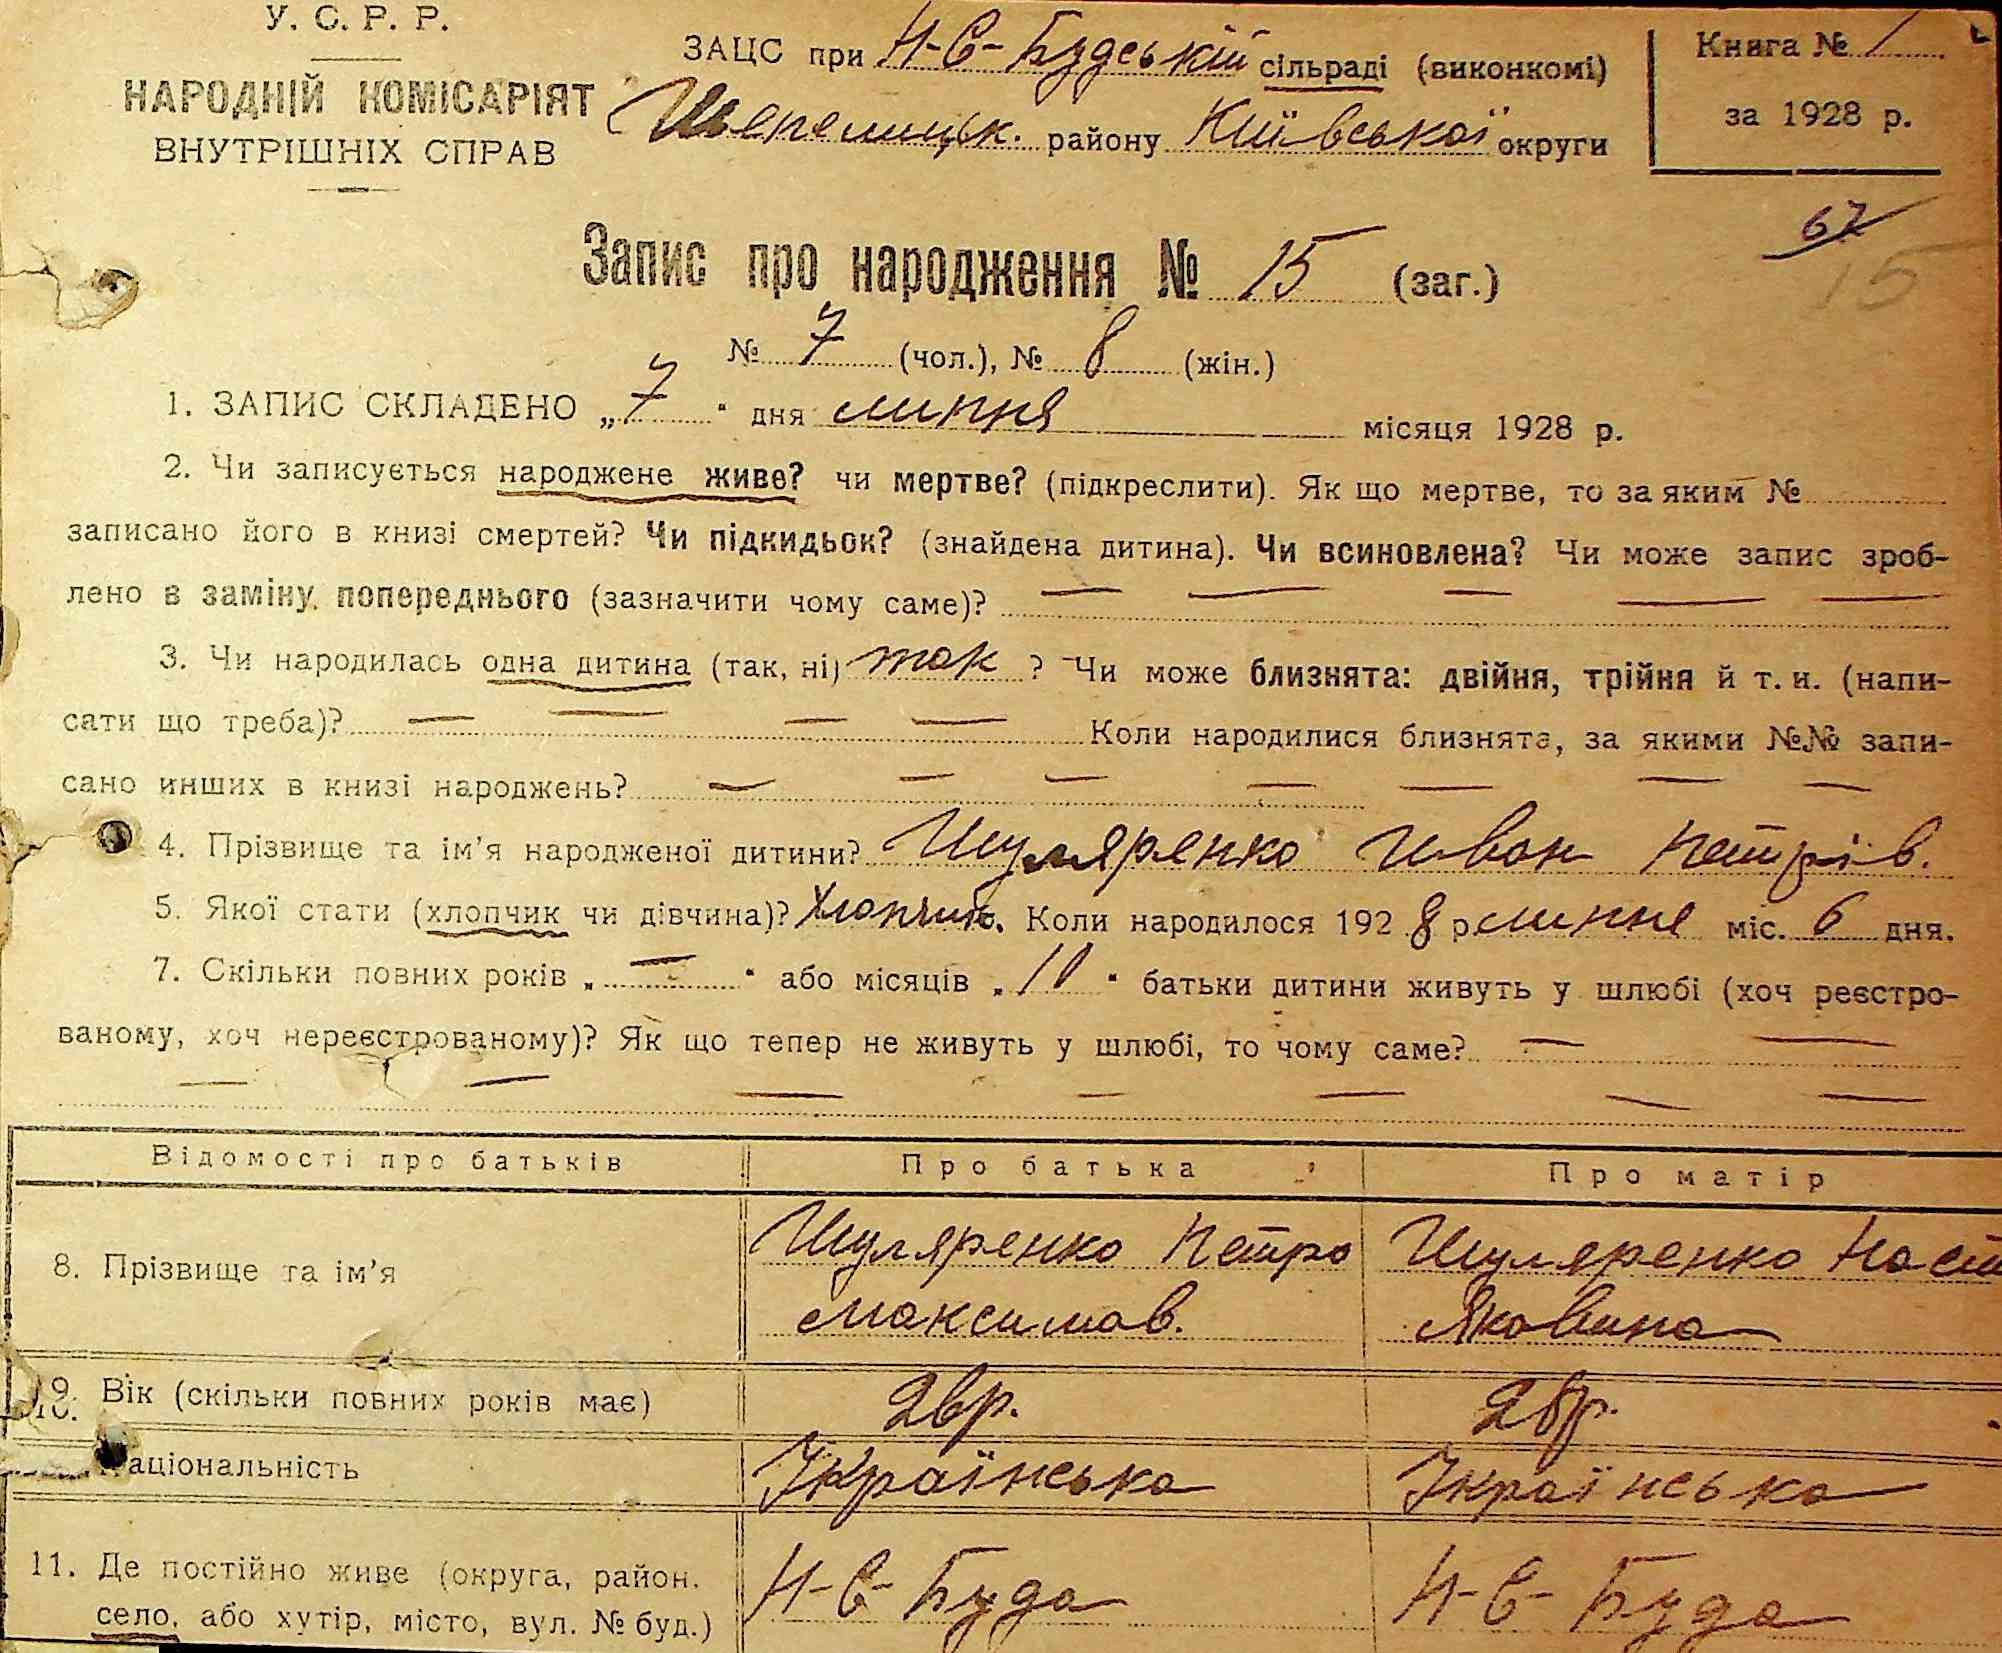 У. С. Р. Р.
НАРОДНІЙ КОМІСАРІЯТ
ВНУТРІШНІХ СПРАВ
ЗАЦС при Н-С-Будській сільраді (виконкомі)
Шепелицьк. району Київської округи
Книга № 1
за 1928 р.
67
15
Запис про народження № 15 (заг.)
№ 7 (чол.), № 8 (жін.)
1. ЗАПИС СКЛАДЕНО „7“ дня липня місяця 1928 р.
2. Чи записується народжене живе? чи мертве? (підкреслити). Як що мертве, то за яким №
записано його в книзі смертей? Чи підкидьок? (знайдена дитина). Чи всиновлена? Чи може запис зроб-
лено в заміну попереднього (зазначити чому саме)? — — — — —
3. Чи народилась одна дитина (так, ні) так ? Чи може близнята: двійня, трійня й т. и. (напи-
сати що треба)? — — — — Коли народилися близнята, за якими №№ запи-
сано инших в книзі народжень? — — — — — — —
4. Прізвище та ім’я народженої дитини? Шуляренко Иван Петрів.
5. Якої стати (хлопчик чи дівчина)? Хлопчик. Коли народилося 1928 р липня міс. 6 дня.
7. Скільки повних років „ — “ або місяців „ 10 “ батьки дитини живуть у шлюбі (хоч реєстро-
ваному, хоч нереєстрованому)? Як що тепер не живуть у шлюбі, то чому саме? — —
— — — — — — —
Відомості про батьків Про батька Про матір
8. Прізвище та ім’я Шуляренко Петро Шуляренко Наст
Максимов. Яковина
9. Вік (скільки повних років має) 26р. 26р.
10. Національність Українська Українська
11. Де постійно живе (округа, район, Н-С-Буда Н-С-Буда
село, або хутір, місто, вул. № буд.)